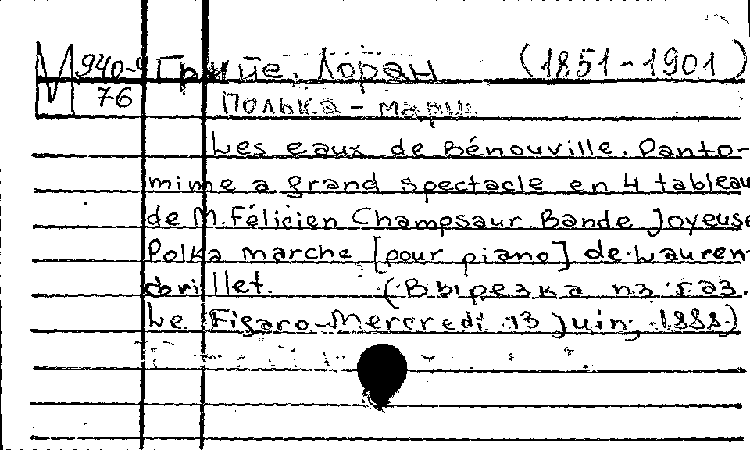 М 940-9 Грийе, Лоран (1851-1901)
76 Полька - марш.
Les eaux de Bénouville. Panto-
mime a grand spectacle en 4 tableau
de M. Félicien Champsaur. Bande Joyeuse
Polka marche [pour piano] de Lauren
Grillet. (Вырезка из газ.
Le Figaro-Mercredi 13 Juin, 1888.)